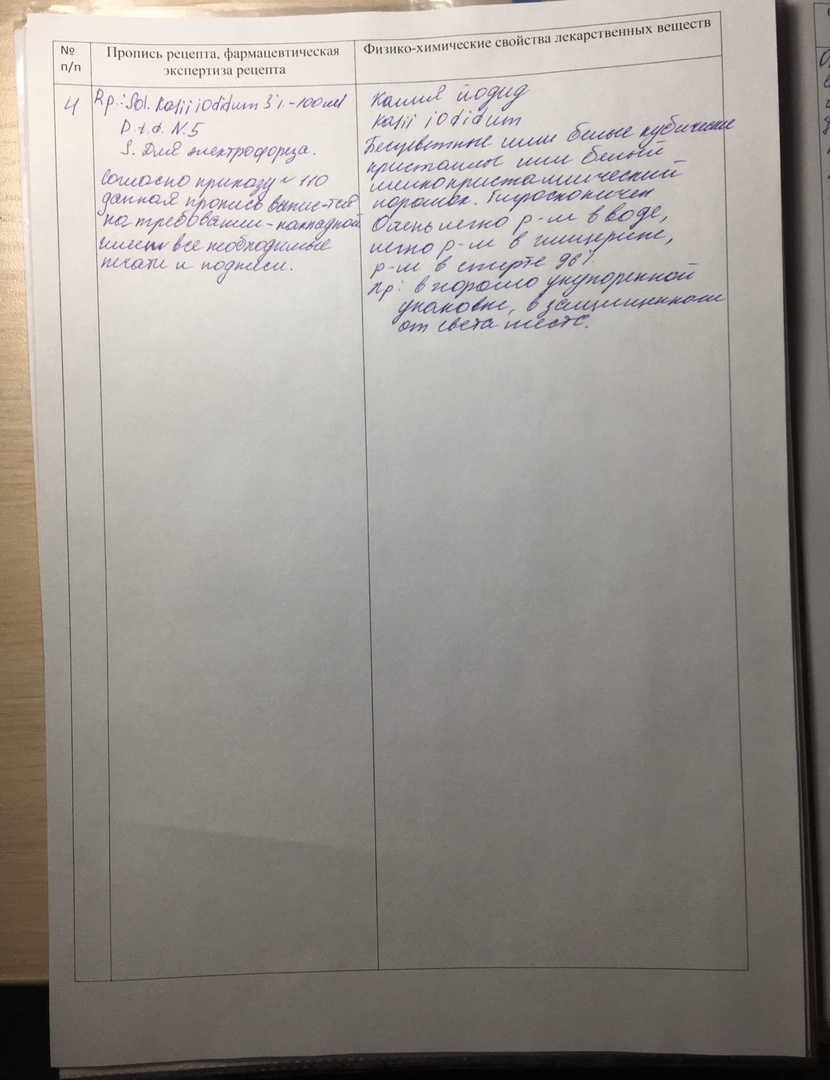 №
п/п
Пропись рецепта, фармацевтическая
экспертиза рецепта
Физико-химические свойства лекарственных веществ
4
Rp.: Sol. Kalii iodidum 3% - 100 ml
D.t.d. N. 5
S. Для электрофорца.
Согласно приказу № 110
данная пропись выпис-тся
на требовании-накладной
имеет все необходимые
печати и подписи.
Калия йодид
Kalii iodidum
Бесцветные или белые кубические
кристаллы или белый
мелкокристаллический
порошок. Гигроскопичен
Очень легко р-м в воде,
легко р-м в глицерине,
р-м в спирте 96%
Хр: в хорошо укупоренной
упаковке, в защищенном
от света месте.